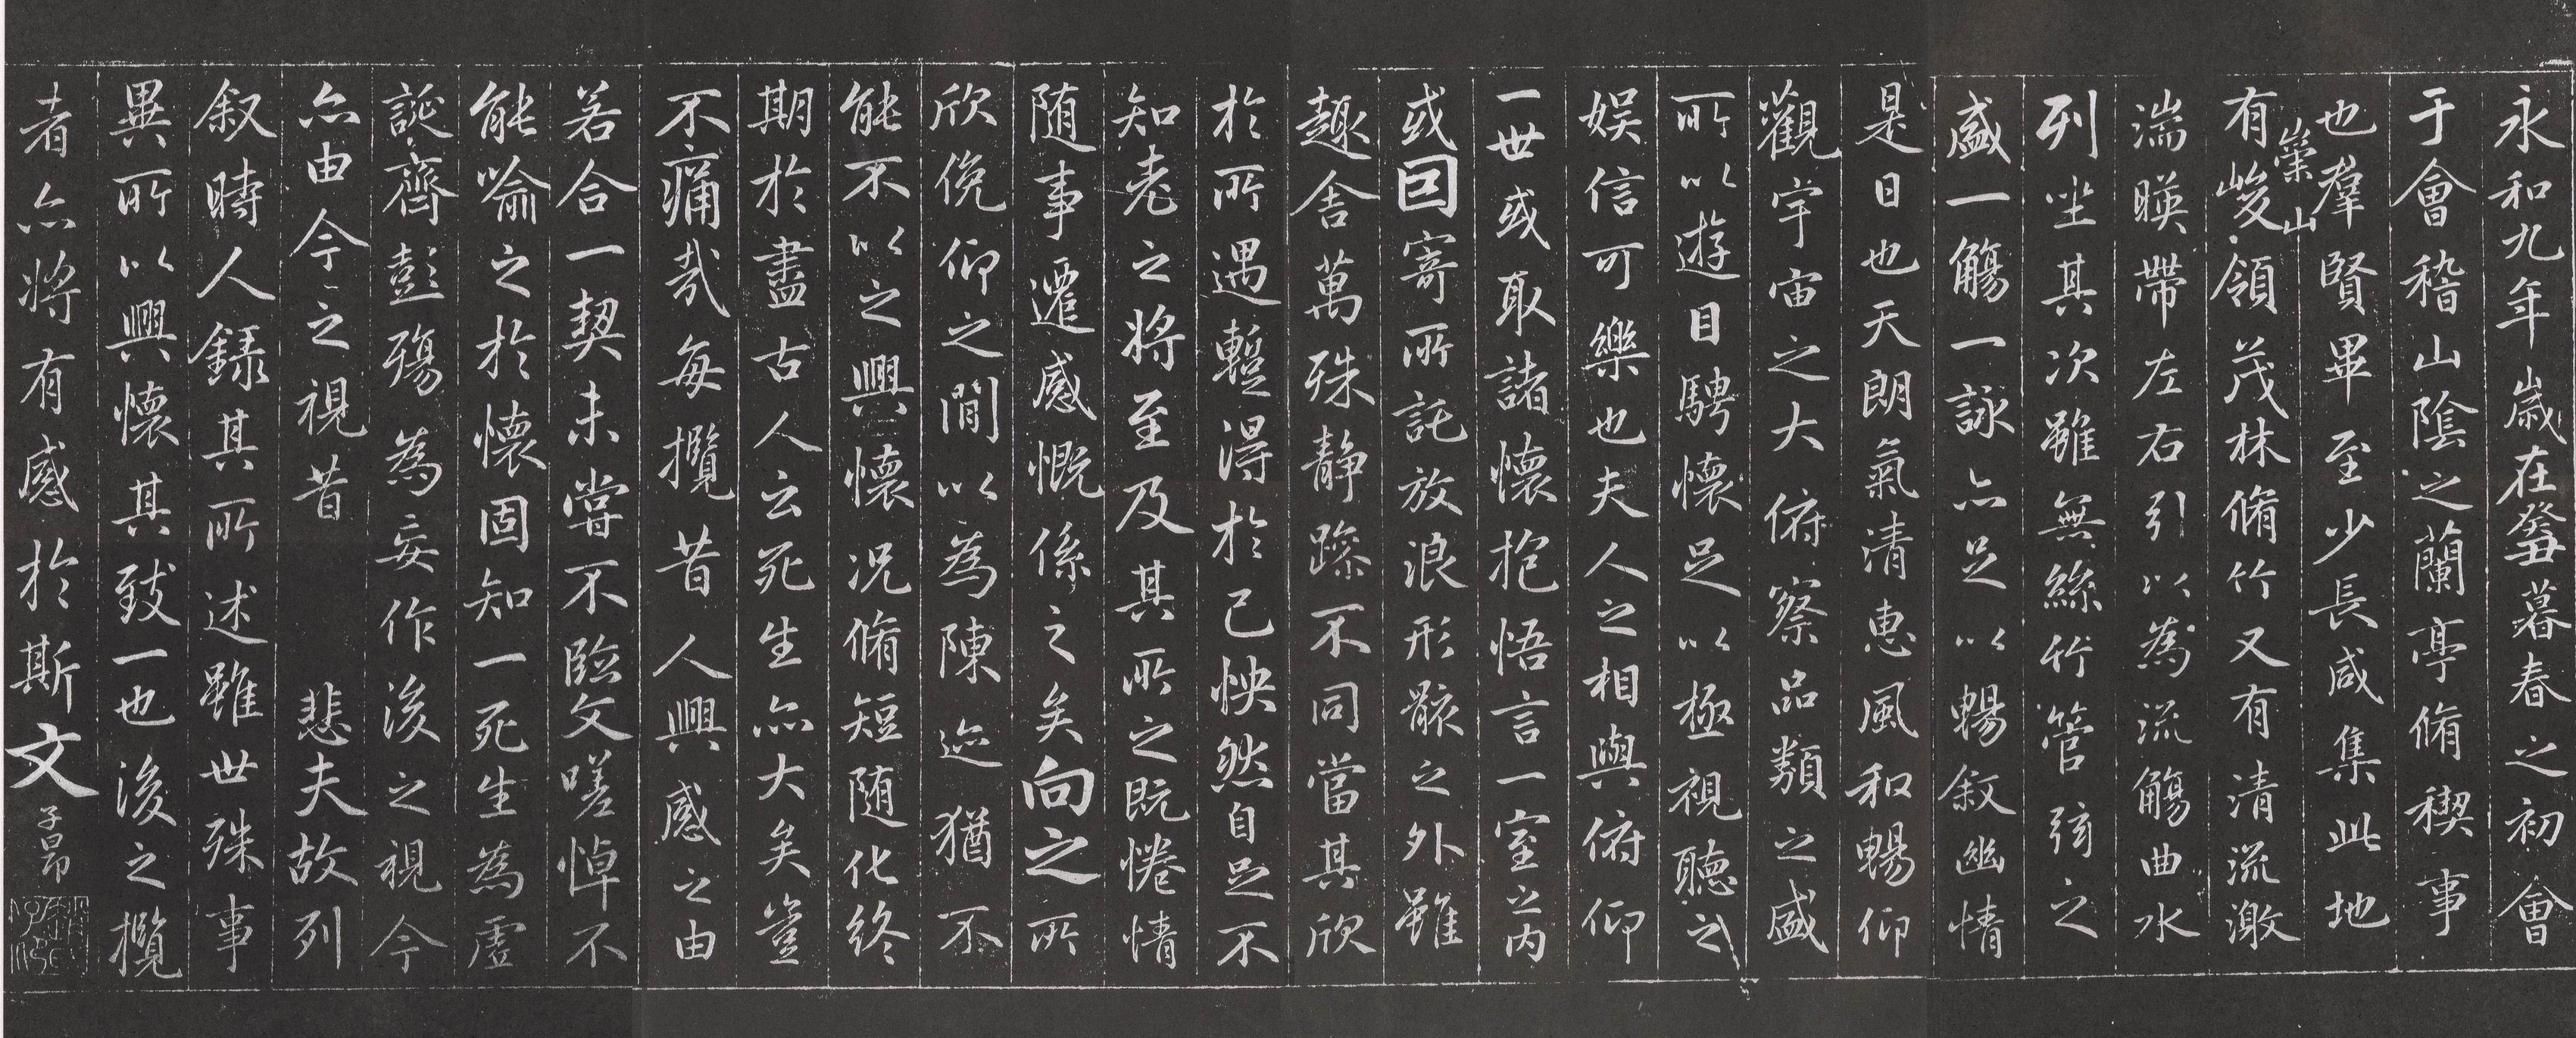 永和九年歲在癸丑暮春之初會
于會稽山陰之蘭亭脩稧事
也羣賢畢至少長咸集此地
有崇山峻領茂林脩竹又有清流激
湍暎帶左右引以為流觴曲水
列坐其次雖無絲竹管弦之
盛一觴一詠亦足以暢敘幽情
是日也天朗氣清惠風和暢仰
觀宇宙之大俯察品類之盛
所以遊目騁懷足以極視聽之
娛信可樂也夫人之相與俯仰
一世或取諸懷抱悟言一室之內
或因寄所託放浪形骸之外雖
趣舍萬殊靜躁不同當其欣
於所遇蹔得於己怏然自足不
知老之將至及其所之既惓情
隨事遷感慨係之矣向之所
欣俛仰之閒以為陳迹猶不
能不以之興懷況脩短隨化終
期於盡古人云死生亦大矣豈
不痛哉每攬昔人興感之由
若合一契未嘗不臨文嗟悼不
能喻之於懷固知一死生為虛
誕齊彭殤為妄作後之視今
亦由今之視昔 悲夫故列
敘時人錄其所述雖世殊事
異所以興懷其致一也後之攬
者亦將有感於斯文 子昂